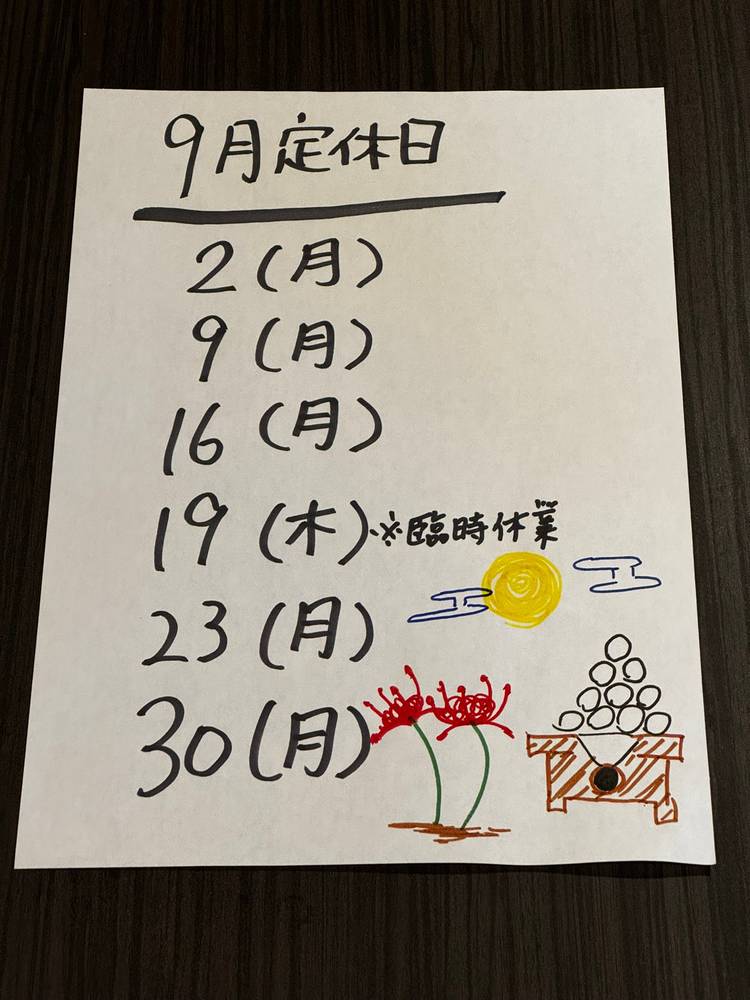 9月定休日
2(月)
9(月)
16(月)
19(木)※臨時休業
23(月)
30(月)